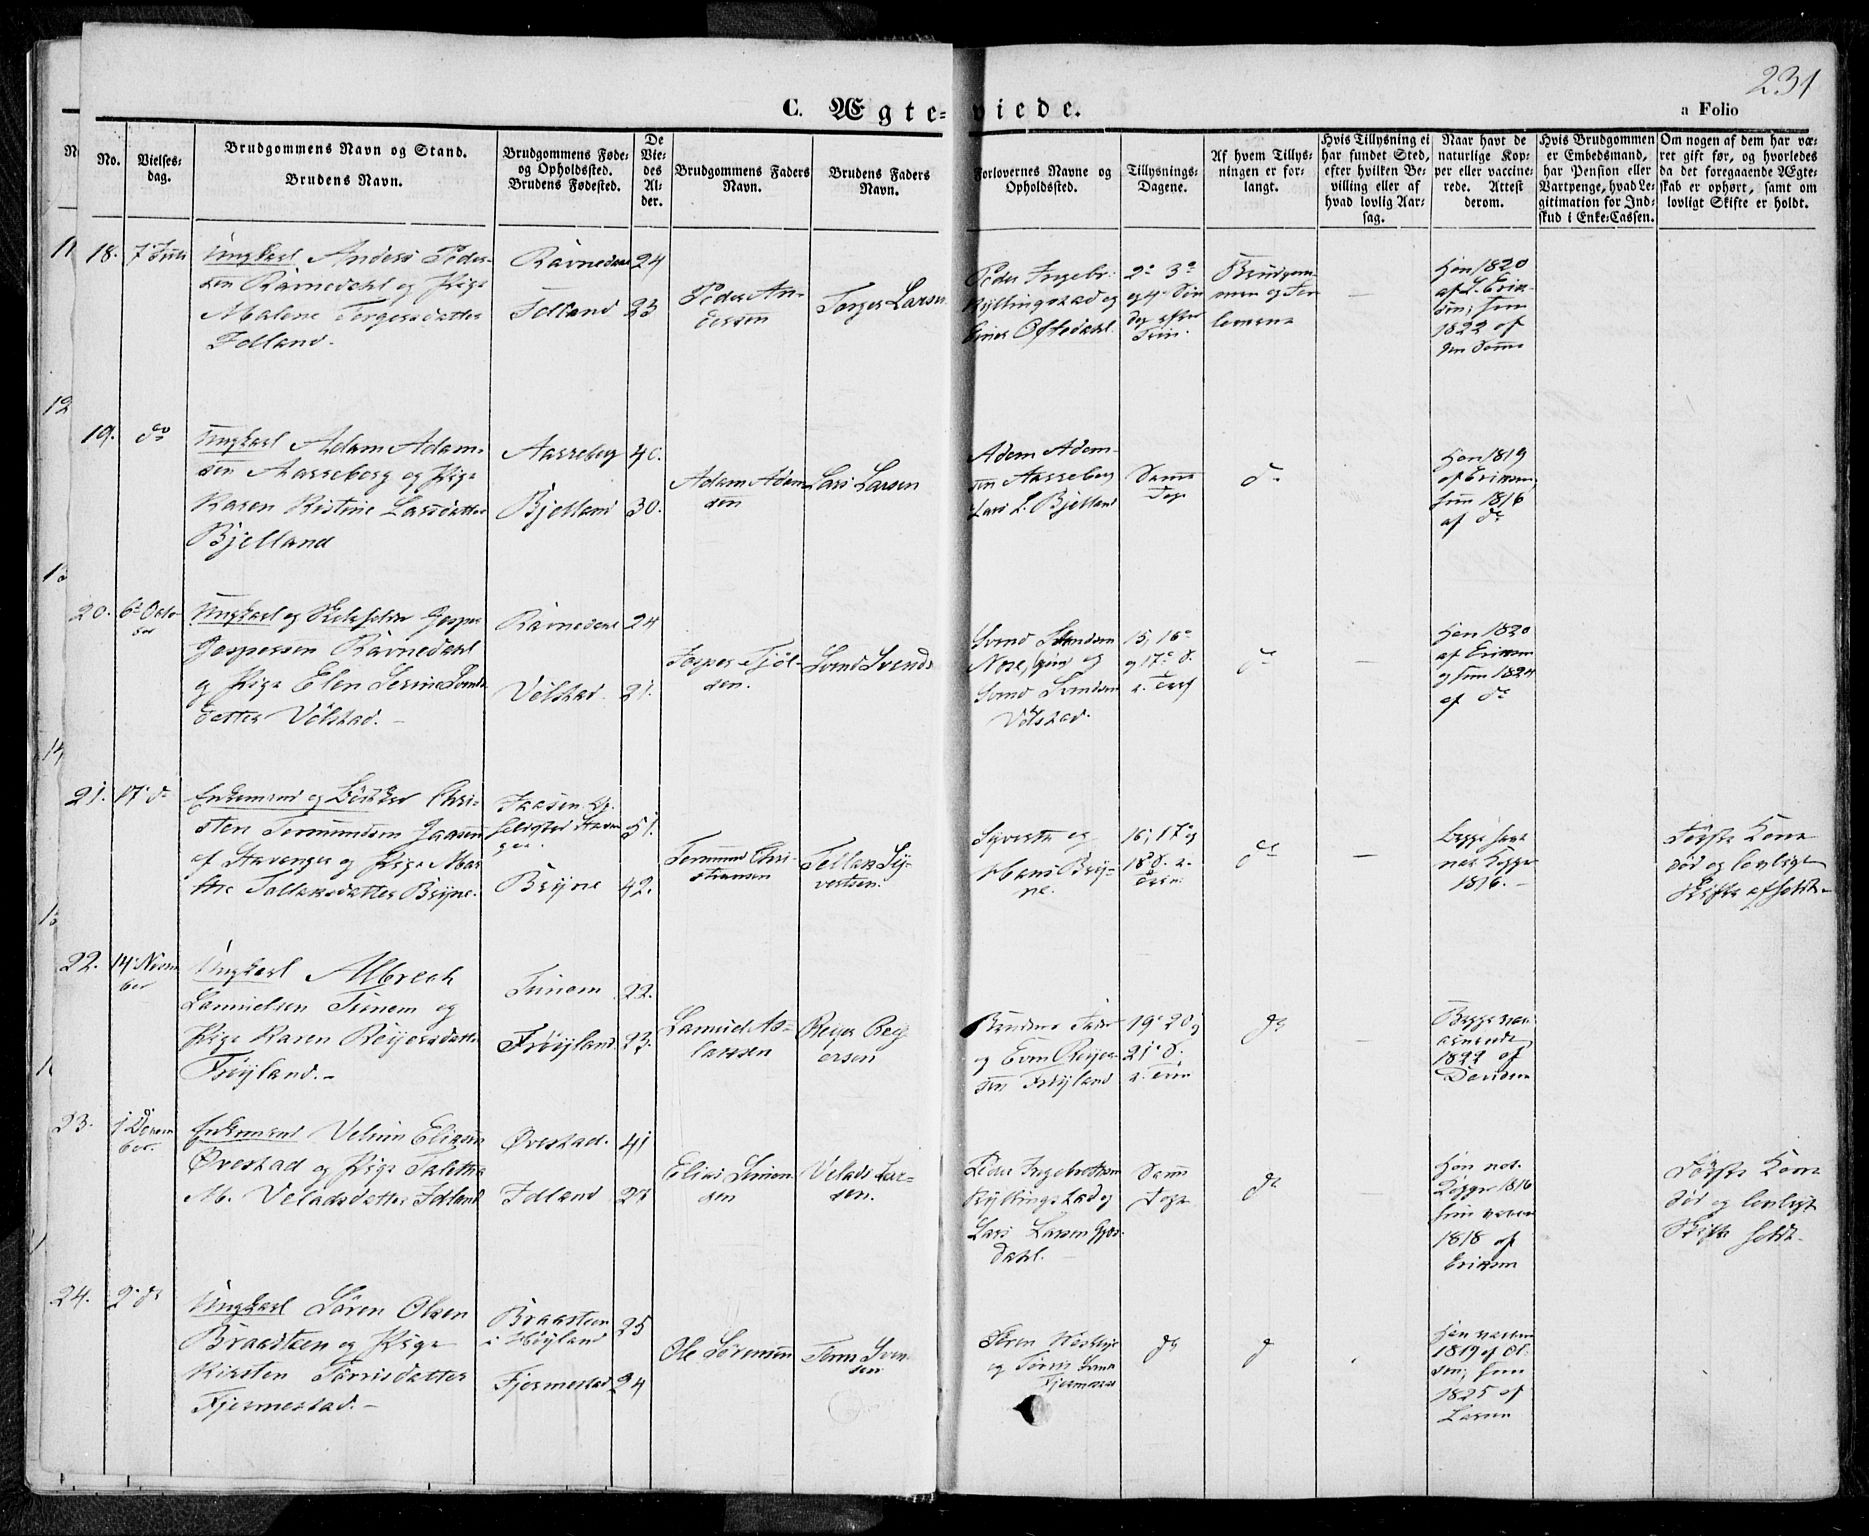 231
C. Ægteviede.
a Folio
No.
Vielses-
dag.
Brudgommens Navn og Stand.
Brudens Navn.
Brudgommens Føde-
og Opholdssted.
Brudens Fødested.
De
Vie-
des
Al-
der.
Brudgommens Faders
Navn.
Brudens Faders
Navn.
Forlovernes Navne og
Opholdssted.
Tillysnings-
Dagene.
Af hvem Tillys-
ningen er for-
langt.
Hvis Tillysning ei
har fundet Sted,
efter hvilken Be-
villing eller af
hvad lovlig Aar-
sag.
Naar havt de
naturlige Kop-
per eller vaccine-
rede. Attest
derom.
Hvis Brudgommen
er Embedsmand,
har Pension eller
Vartpenge, hvad Le-
gitimation for Ind-
skud i Enke-Cassen.
Om nogen af dem har væ-
ret gift før, og hvorledes
da det foregaaende Ægte-
skab er ophørt, samt om
lovligt Skifte er holdt.
18.
7 Juli
Ungkarl Anders Peder-
sen Ravnedahl og Pige
Malene Torgersdatter
Idland.
Ravnedahl
Idland
24
23
Peder An-
dersen
Torger Larsen
Peder Ingebr.
Kyllingstad og
Einer Oftedahl
2de 3de
og 4de Søn
dag efter
Trin.
Brudgom-
men og For
loverne
Han 1820
af L. Erik-
sen, hun
1822 af
den Samme
19.
do
Ungkarl Adam Adam-
sen Aasseberg og Pige
Karen Kistine Larsdatter
Bjelland
Aasseberg
Bjelland
40.
30.
Adam Adam
sen
Lars Larsen
Adam Adam-
sen Aasseberg
Lars L. Bjelland
Samme
Dage
do
Han 1819
af Eriksen,
hun 1816
af do
20.
6te Octo-
ber
Ungkarl og Jasper
Jaspersen Ravnedahl
og Pige Elen Serine Svends
datter Vølstad.
Ravnedahl
Vølstad
24
21.
Jasper Tjøl-
sen.
Svend Svends
Svend Svendsen
og
Svend Svendsen
Vølstad.
15, 16de
og 17de S.
e. Trif
do
Han 1820
af Eriksen
og hun 1824
af do
21.
17de do
Enkemand og Bødker Chri-
sten Tormundsen Jaasen
af Stavanger og Pige Mar
the Tollaksdatter Bryne.
Jaasen
Stavan
ger.
Bryne
51.
42.
Tormund Chri-
stiansen
Tollak Sy-
vertsen.
Syvert og
Hans Bry-
ne.
16, 17 og
18 S. e.
Trin.
do
Begge have
nat. Kopper
1816.
Første Kone
død og lovligt
Skifte afholdt.
22.
14de Novem
ber
Ungkarl Albrech
Samuelsen Tunem og
Pige Karen Reiersdatter
Frøyland.
Tunem
Frøyland
22.
23.
Samuel As-
laksen
Reyer Rey
ersen
Brudens Fader
og Even Reyer-
sen Frøyland
19de 20 og
21de S.
e. Trin
do
Begge vac-
cinerede
1822 af
Davidsen
23.
1 Decem
ber.
Enkemand Velum Eliassen
Ørestad og Pige Talette
M. Veladsdatter Idland
Ørestad.
Idland
41
23
Elias Simon
sen
Velads Lar-
sen.
Peder Ingebretsen
Kyllingstad og
Lars Larsen Gjes-
dahl.
Samme
Dage
do
Han nat.
Kopper 1816
hun vaccin
1818 af
Eriksen
Første Kone
død og lovligt
Skifte holdt.
24.
2de do
Ungkarl Søren Olsen
Braasteen og Pige
Kirsten Tørrisdatter
Fjermestad.
Braasteen
i Høyland
Fjermestad
25
24
Ole Sørensen
Tørris Svend-
sen
Søren
og Tørris Svend
Fjermestad
do
do
Han vaccin
1819 af Ol-
sen, hun
1825 af
Larsen